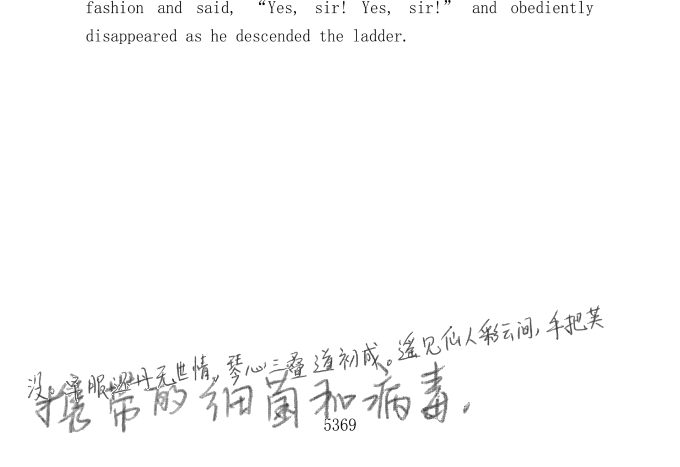 fashion and said, “Yes, sir! Yes, sir!” and obediently
disappeared as he descended the ladder.
没。早服还丹无世情，琴心三叠道初成。遥见仙人彩云间，手把芙
携带的细菌和病毒.
5369